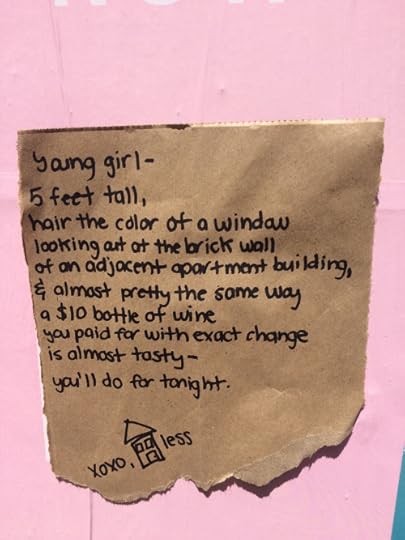 young girl-
5 feet tall,
hair the color of a window
looking out at the brick wall
of an adjacent apartment building,
& almost pretty the same way
a $10 bottle of wine
you paid for with exact change
is almost tasty-
you'll do for tonight.
xoxo, less